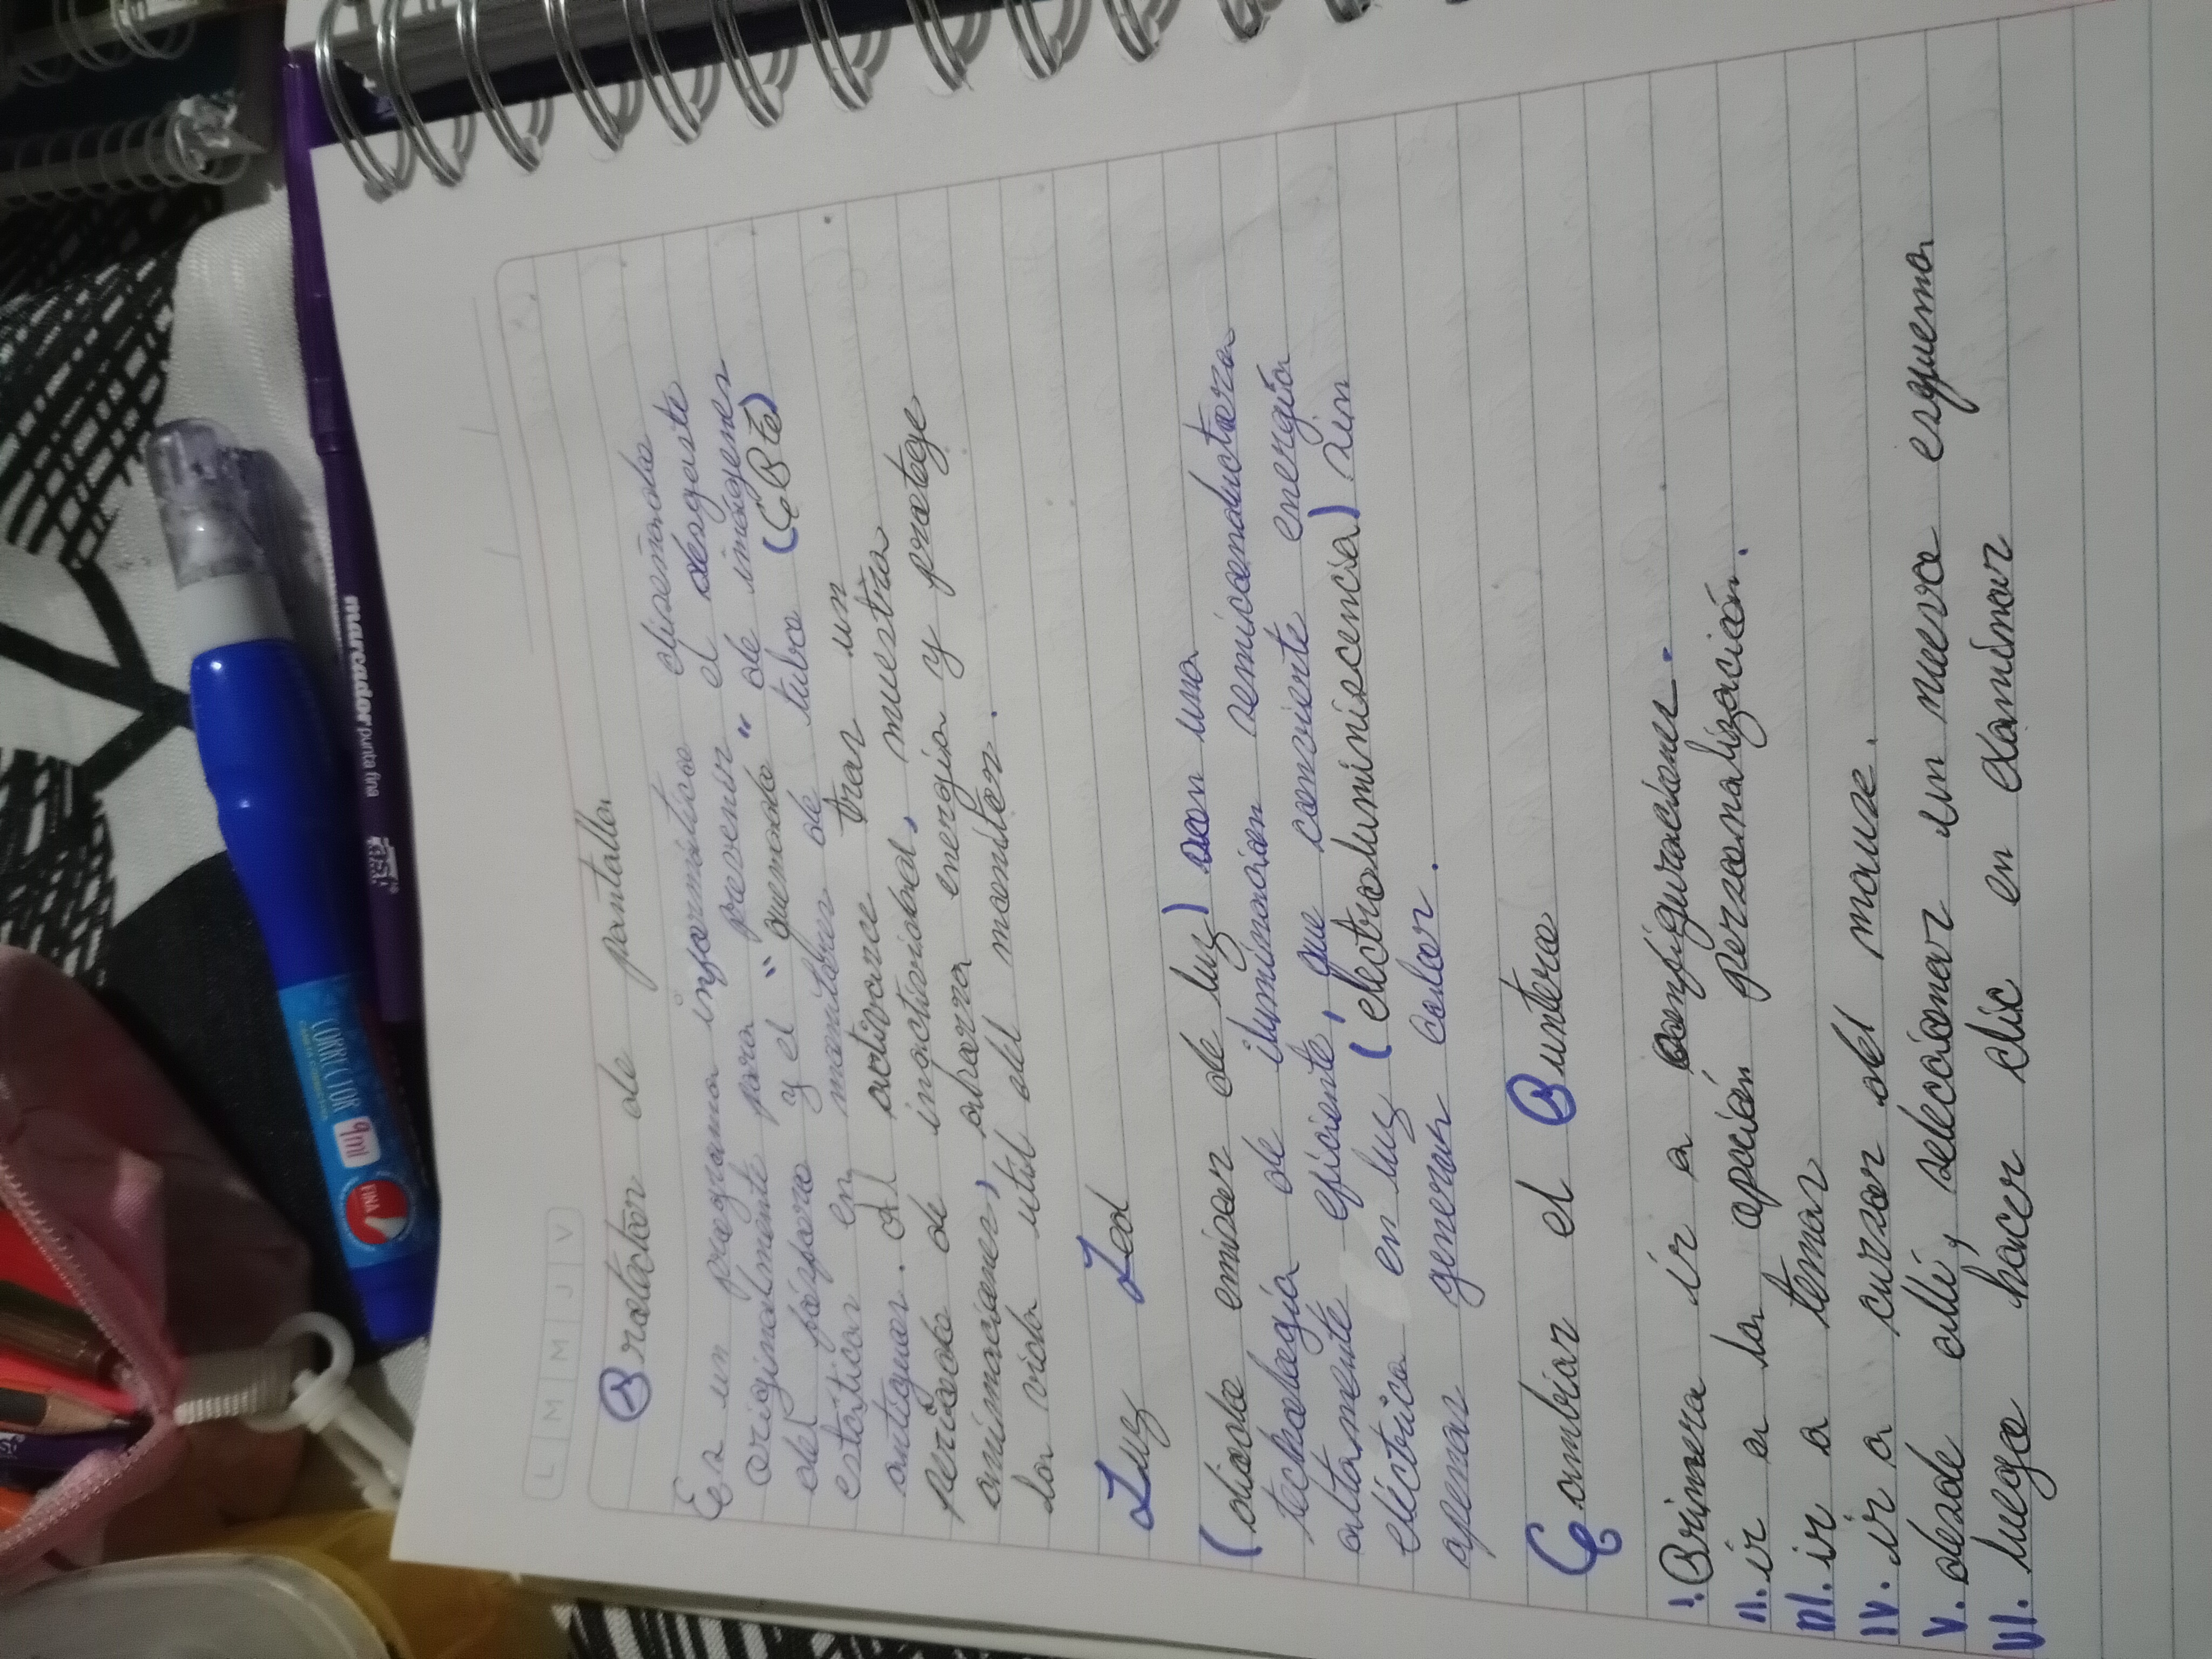 L M M J V
Protector de pantalla
Es un programa informático diseñado
originalmente para prevenir el desgaste
del fósforo y el "quemado" de imágenes
estáticas en monitores de tubo (CRT)
antiguos. Al activarse tras un
período de inactividad, muestra
animaciones, ahorra energía y protege
la vida útil del monitor.
Luz Led
(diodo emisor de luz) son una
technología de iluminación semiconductora
altamente eficiente, que convierte energía
eléctrica en luz (electroluminiscencia) sin
apenas generar calor.
Cambiar el Puntero
I. Primero ir a configuraciones.
II. ir a la opción personalización.
III. ir a temas
IV. ir a cursor del mouse.
V. desde allí, seleccionar un nuevo esquema
VI. luego hacer clic en examinar
marcador punta fina
CORRECTOR
9ml
FINA